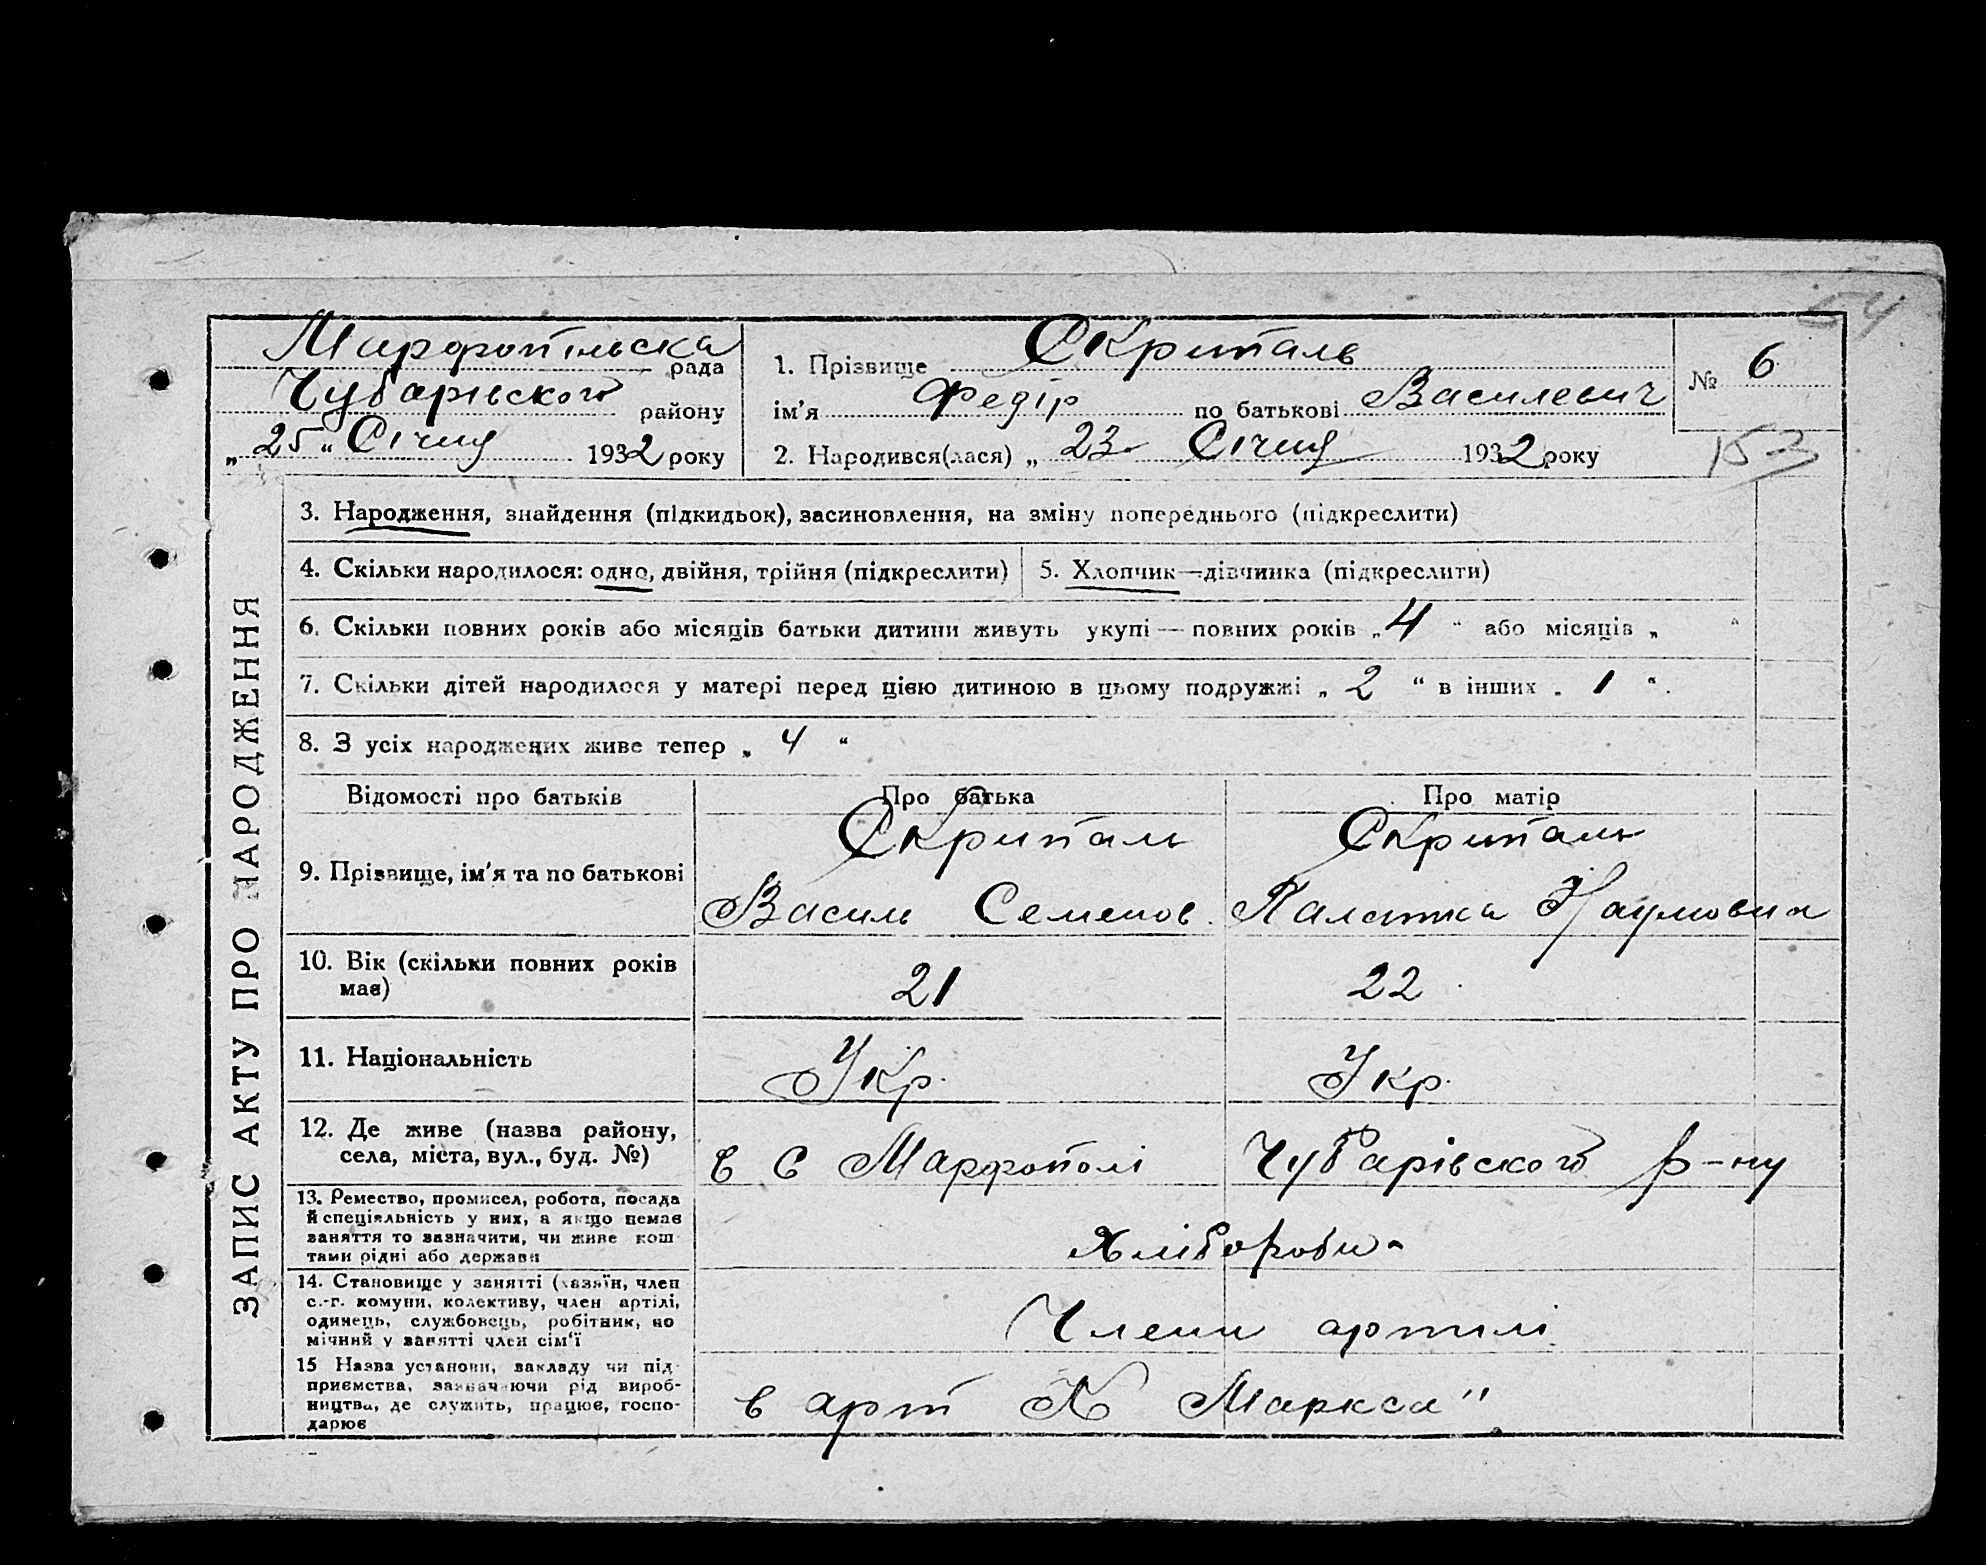 54
Марфопільська рада
Чубарівського району
„25“ Січня 1932 року
1. Прізвище Скрипаль
ім'я Федір по батькові Василевич
2. Народився(лася) „ 23 Січня 1932 року
№ 6
153
ЗАПИС АКТУ ПРО НАРОДЖЕННЯ
3. Народження, знайдення (підкидьок), засиновлення, на зміну попереднього (підкреслити)
4. Скільки народилося: одно, двійня, трійня (підкреслити)
5. Хлопчик—дівчинка (підкреслити)
6. Скільки повних років або місяців батьки дитини живуть укупі — повних років „4“ або місяців „ “
7. Скільки дітей народилося у матері перед цією дитиною в цьому подружжі „ 2 “ в інших „ 1 “.
8. З усіх народжених живе тепер „ 4 “
Відомості про батьків Про батька Про матір
9. Прізвище, ім'я та по батькові
Скрипаль Скрипаль
Василь Семенов. Наумовна
10. Вік (скільки повних років
має)
21 22
11. Національність
Укр. Укр.
12. Де живе (назва району,
села, міста, вул., буд. №)
в с Марфополі Чубарівского р-ну
13. Ремество, промисел, робота, посада
й спеціяльність у них, а якщо немає
заняття то зазначити, чи живе кош-
тами рідні або держави
Хлібороби
14. Становище у занятті (хазяїн, член
с.-г. комуни, колективу, член артілі,
одинець, службовець, робітник, по
мічний у занятті член сім'ї
Члени артилі
15 Назва установи, закладу чи під-
приємства, зазначаючи рід вироб-
ництва, де служить, працює, госпо-
дарює
в арт К Маркса"